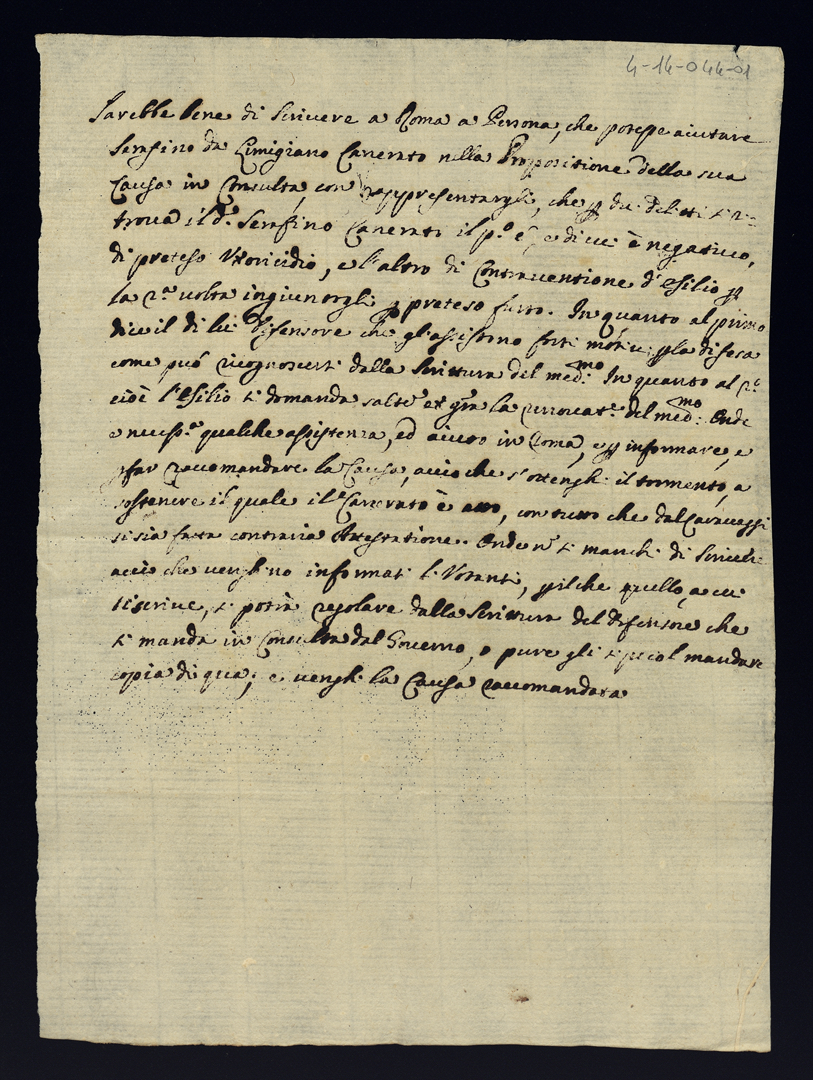 4-14-044-01
Sarebbe bene di scrivere a Roma a Persona, che potesse aiutare
Serafino da Cimigiano Carcerato nella Propositione della sua
Causa in Consulta, con rappresentargli, che p due delitti si ri=
trova il d.º Serafino Carcerato il p.º è, e di cui è negativo,
di preteso Uxoricidio, e l'altro di Contraventione d'esilio p
la 2.ª volta ingiuntogli p preteso furto. In quanto al primo
dice il di lui Difensore che gl'assistono forti motivi p la difesa
come può ricognoscersi dalla Scrittura del med.mo In quanto al 2.º
cioè l'esilio si domanda la revocat.e del med.mo: Onde
è necess.ª qualche assistenza, ed aiuto in Roma, e p informare, e
p far racomandare la Causa, acciò che s'ottenghi il tormento, a
sostenere il quale il Carcerato è atto, con tutto che dal
si sia fatta contraria Attestatione. Onde nõ si manchi di scrivere
acciò che venghino informati li Votanti, p il che quello, a cui
si scrive, si potrà regolare dalla Scrittura del Difensore che
si manda in Consulta dal Governo, o pure gli si puol mandare
copia di qua, e venghi la Causa raccomandata